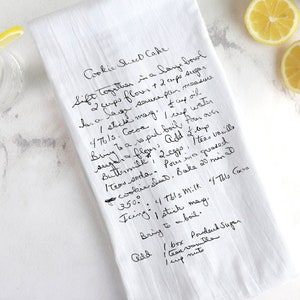 Cookie Sheet Cake
Sift together in a large bowl
2 cups flour + 2 cups sugar
In a large saucepan measure
1 stick marg ½ cup oil
4 Tbls Cocoa 1 cup water
Bring to a rapid boil, Pour over
sugar & flour. Add ½ cup
Buttermilk 2 eggs 1 teas vanilla
1 teas soda. Pour in greased
cookie sheet. Bake 20 min
350°
Icing: 4 Tbls Milk 4 Tbls Cocoa
1 stick marg.
Bring to a boil.
Add 1 box Powdered Sugar
1 teas vanilla
1 cup nuts